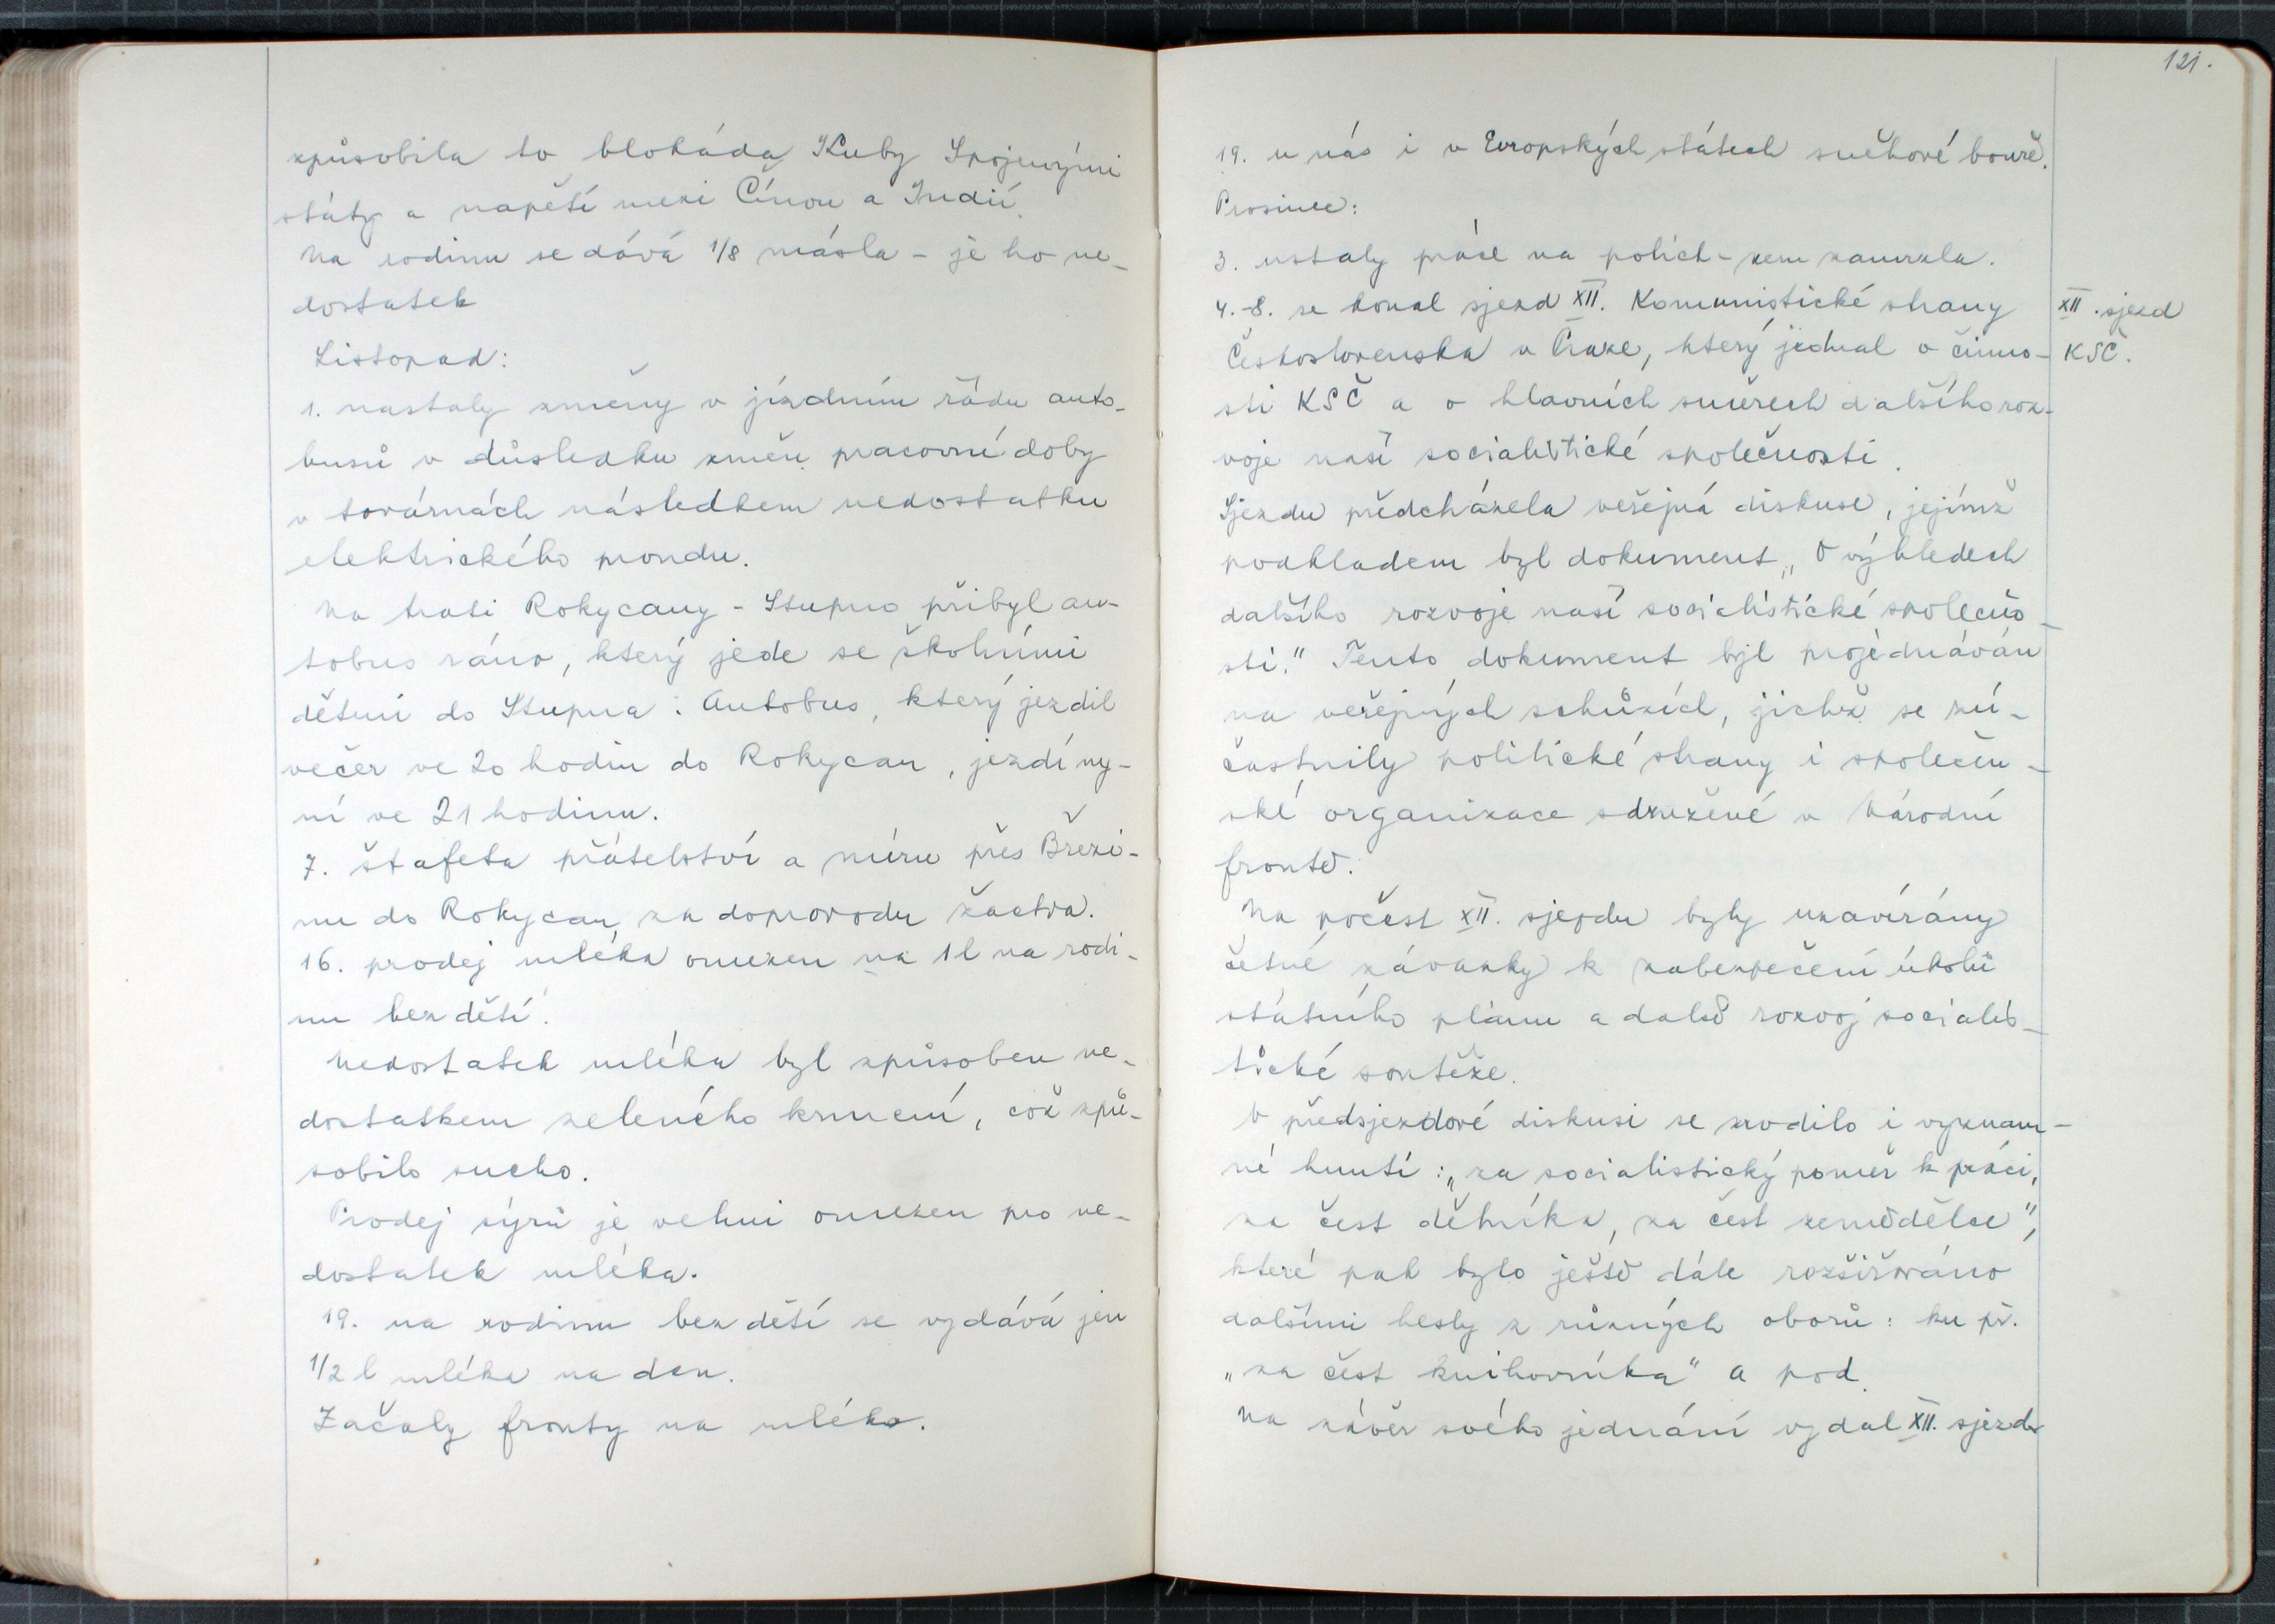 způsobila to blokáda Kuby Spojenými
státy a napětí mezi Čínou a Indií.
Na rodinu se dává 1/8 másla - je ho ne-
dostatek
Listopad:
1. nastaly změny v jízdním řádu auto-
busů v důsledku změn pracovní doby
v továrnách následkem nedostatku
elektrického proudu.
Na trati Rokycany - Stupno přibyl au-
tobus ráno, který jede se školními
dětmi do Stupna. Autobus, který jezdil
večer ve 20 hodin do Rokycan, jezdí ny-
ní ve 21 hodinu.
7. štafeta přátelství a míru přes Březi-
nu do Rokycan za doprovodu žactva.
16. prodej mléka omezen na 1 l na rodi-
nu bez dětí.
Nedostatek mléka byl způsoben ne-
dostatkem zeleného krmení, což způ-
sobilo sucho.
Prodej sýrů je velmi omezen pro ne-
dostatek mléka.
19. na rodinu bez dětí se vydává jen
1/2 l mléka na den.
Začaly fronty na mléko.
121.
19. u nás i v Evropských státech sněhové bouře.
Prosinec:
3. ustaly práce na polích - zem zamrzla.
4.-8. se konal sjezd XII. Komunistické strany
Československa v Praze, který jednal o činno-
sti KSČ a o hlavních směrech dalšího roz-
voje naší socialistické společnosti.
Sjezdu předcházela veřejná diskuse, jejímž
podkladem byl dokument „O výhledech
dalšího rozvoje naší socialistické společno-
sti." Tento dokument byl projednáván
na veřejných schůzích, jichž se zú-
častnily politické strany i společen-
ské organizace sdružené v Národní
frontě.
Na počest XII. sjezdu byly uzavírány
četné závazky k zabezpečení úkolů
státního plánu a další rozvoj socialis-
tické soutěže.
V předsjezdové diskusi se zrodilo i význam-
né hnutí: „za socialistický poměr k práci,
za čest dělníka, za čest zemědělce",
které pak bylo ještě dále rozšiřováno
dalšími hesly z různých oborů: ku př.
„za čest knihovníka" a pod.
Na závěr svého jednání vydal XII. sjezd
XII. sjezd
KSČ.